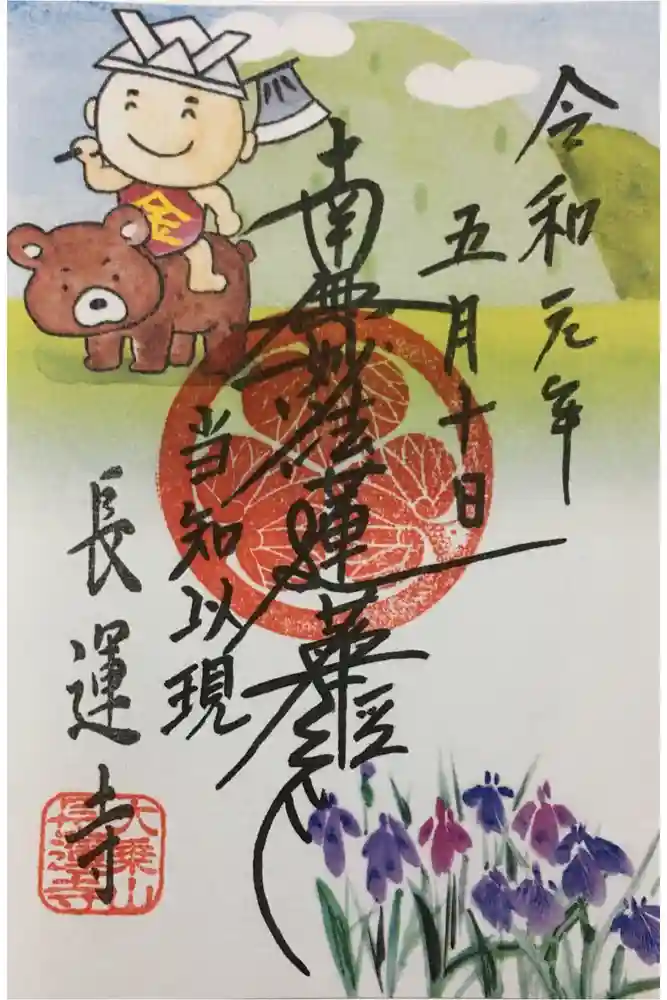 令和元年
五月十日
南無妙法蓮華経
当知以現
長運寺
金
大乗山
長運寺